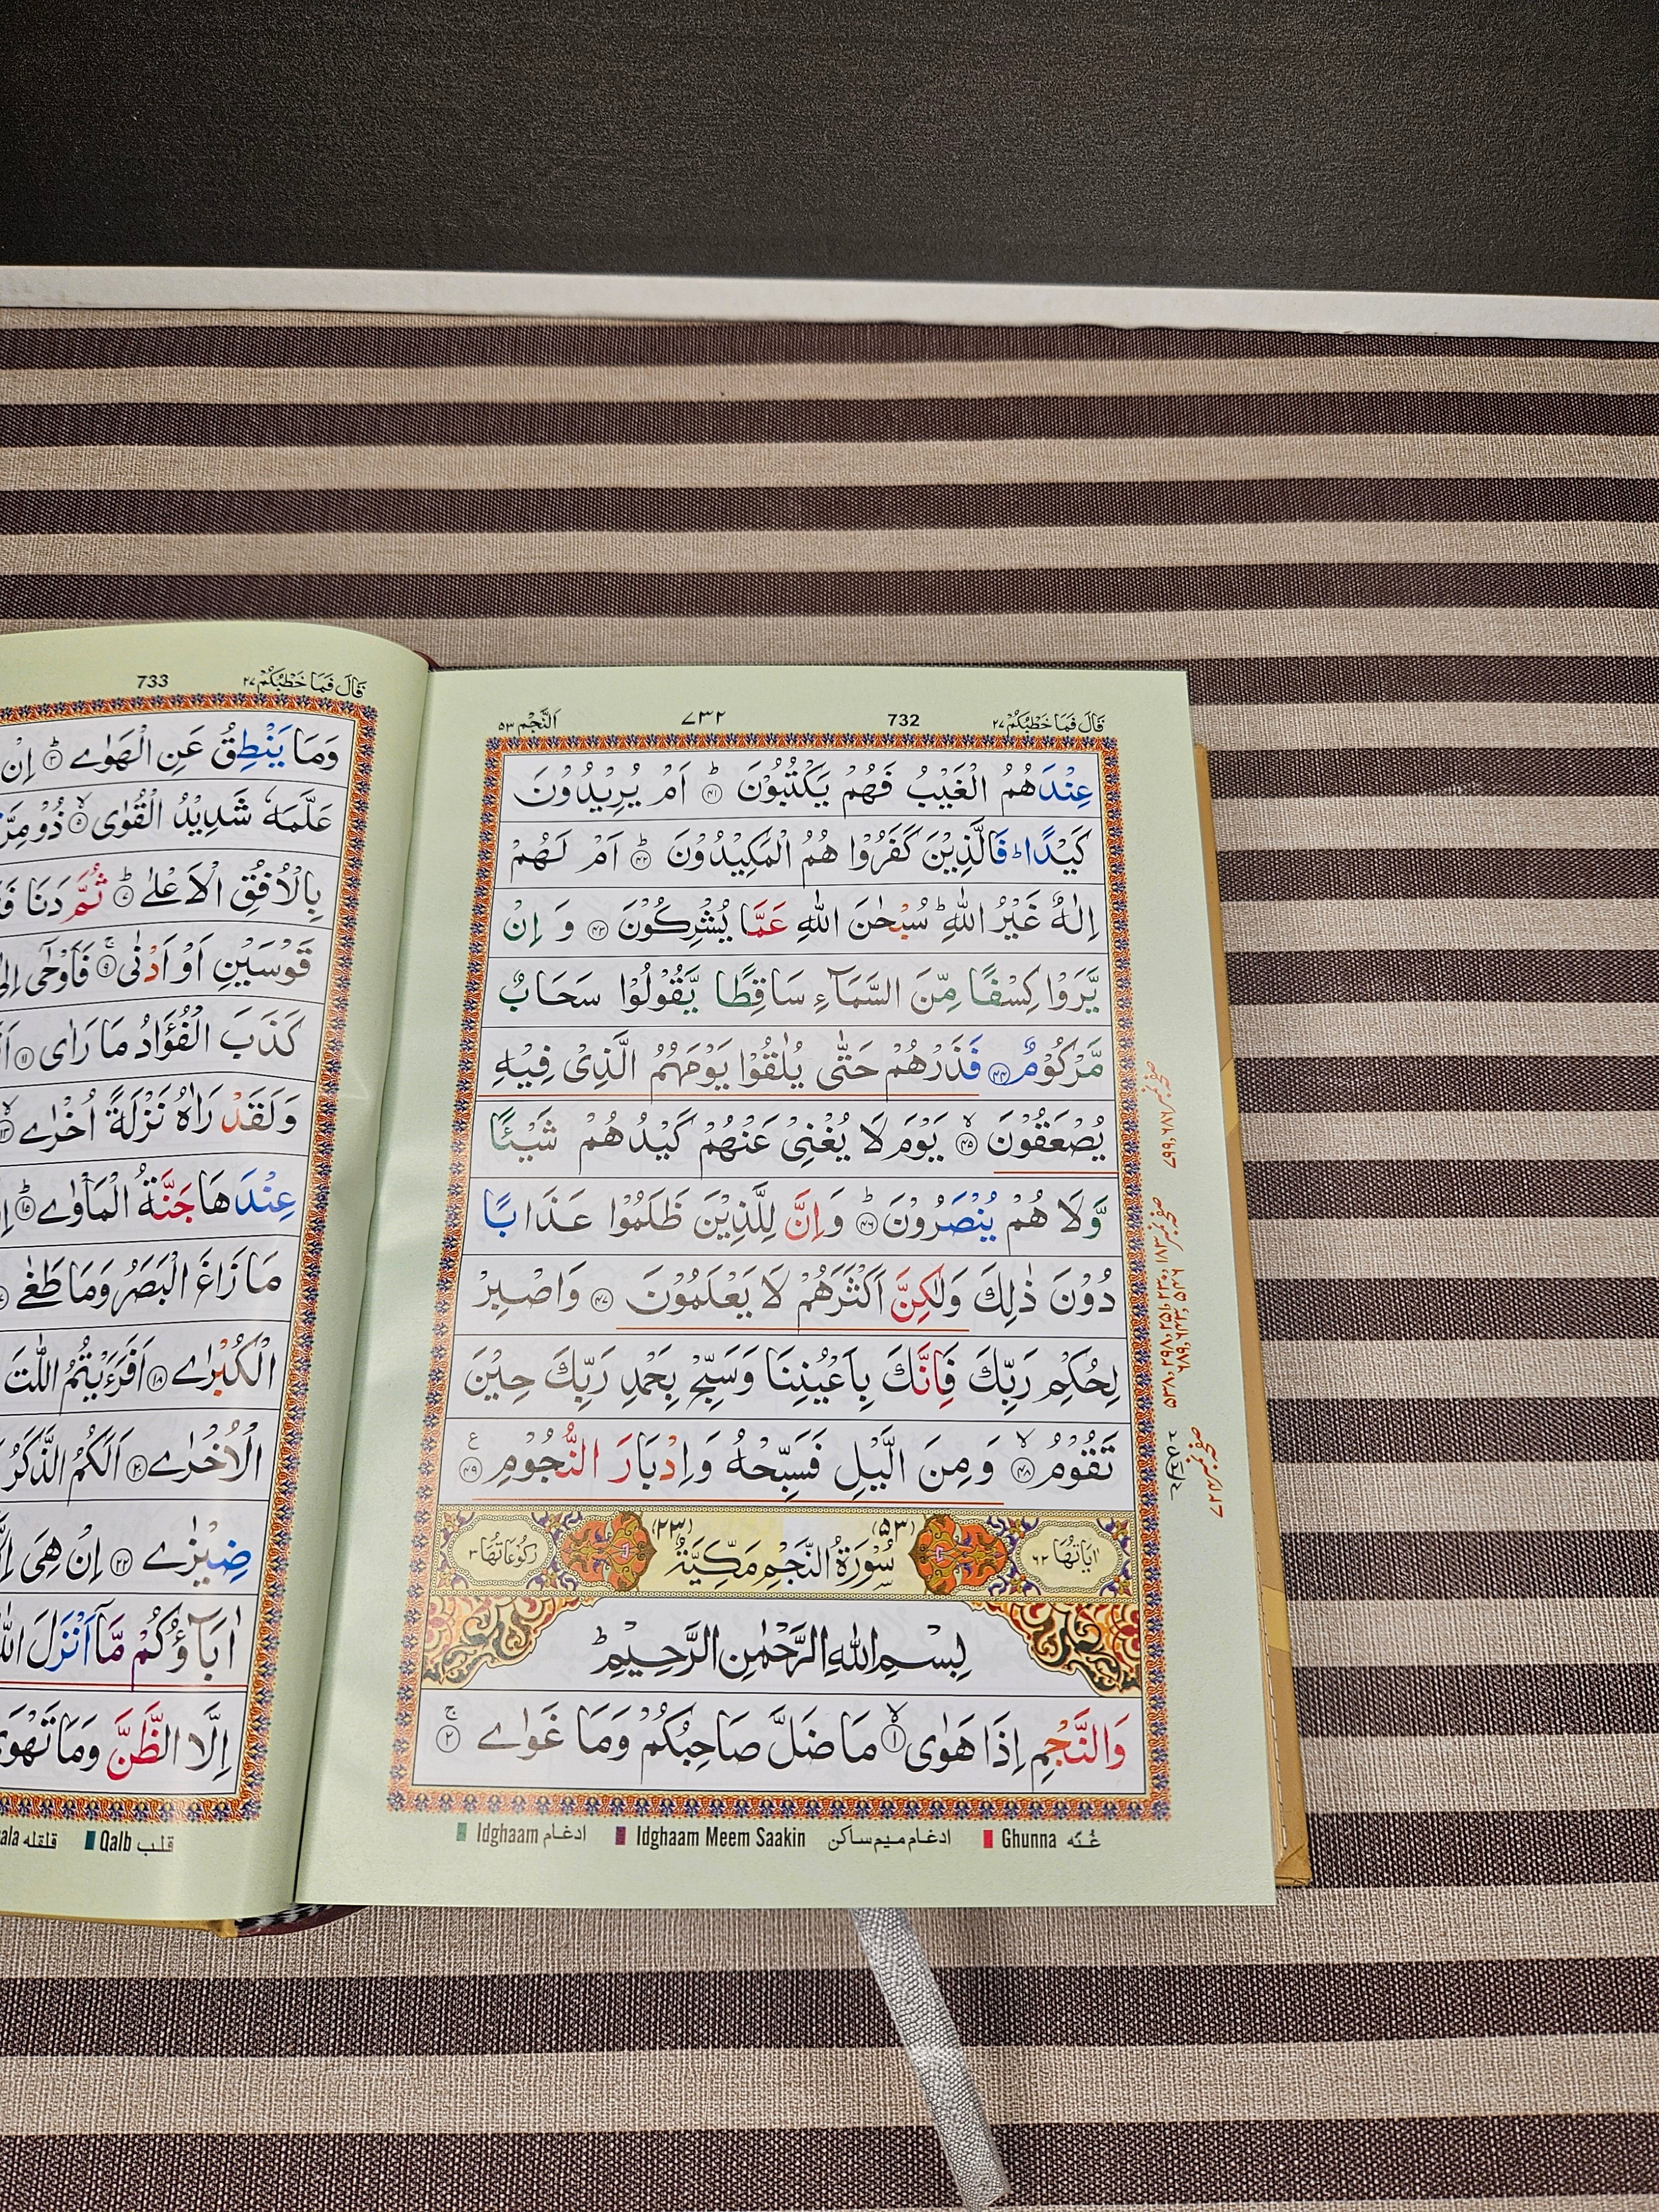 قَالَ فَمَا خَطْبُكُمْ ٢٧ 732 ٧٣٢ اَلنَّجْم ٥٣
عِنْدَهُمُ الْغَيْبُ فَهُمْ يَكْتُبُوْنَ ؕ۴۱ اَمْ يُرِيْدُوْنَ
كَيْدًا ؕ فَالَّذِيْنَ كَفَرُوْا هُمُ الْمَكِيْدُوْنَ ؕ۴۲ اَمْ لَهُمْ
اِلٰهٌ غَيْرُ اللّٰهِ ؕ سُبْحٰنَ اللّٰهِ عَمَّا يُشْرِكُوْنَ ۴۳ وَ اِنْ
يَّرَوْا كِسْفًا مِّنَ السَّمَآءِ سَاقِطًا يَّقُوْلُوْا سَحَابٌ
مَّرْكُوْمٌ ۴۴ فَذَرْهُمْ حَتّٰى يُلٰقُوْا يَوْمَهُمُ الَّذِىْ فِيْهِ
يُصْعَقُوْنَ ۙ۴۵ يَوْمَ لَا يُغْنِىْ عَنْهُمْ كَيْدُهُمْ شَيْـًٔا
وَّلَا هُمْ يُنْصَرُوْنَ ؕ۴۶ وَاِنَّ لِلَّذِيْنَ ظَلَمُوْا عَذَابًا
دُوْنَ ذٰلِكَ وَلٰكِنَّ اَكْثَرَهُمْ لَا يَعْلَمُوْنَ ۴۷ وَاصْبِرْ
لِحُكْمِ رَبِّكَ فَاِنَّكَ بِاَعْيُنِنَا وَسَبِّحْ بِحَمْدِ رَبِّكَ حِيْنَ
تَقُوْمُ ۙ۴۸ وَمِنَ الَّيْلِ فَسَبِّحْهُ وَاِدْبَارَ النُّجُوْمِ ۴۹ ع
اٰيَاتُهَا ٦٢ (٥٣) سُوْرَةُ النَّجْمِ مَكِّيَّةٌ (٢٣) رُكُوْعَاتُهَا ٣
بِسْمِ اللّٰهِ الرَّحْمٰنِ الرَّحِيْمِ ؕ
وَالنَّجْمِ اِذَا هَوٰى ۙ۱ مَا ضَلَّ صَاحِبُكُمْ وَمَا غَوٰى ۚ۲
Ghunna غُنّه Idghaam Meem Saakin ادغام ميم ساكن Idghaam ادغام
قَالَ فَمَا خَطْبُكُمْ ٢٧ 733
وَمَا يَنْطِقُ عَنِ الْهَوٰى ؕ۳ اِنْ
عَلَّمَهٗ شَدِيْدُ الْقُوٰى ۙ۵ ذُوْ مِرَّ
بِالْاُفُقِ الْاَعْلٰى ؕ۷ ثُمَّ دَنَا
قَوْسَيْنِ اَوْ اَدْنٰى ۚ۹ فَاَوْحٰۤى اِلٰى
كَذَبَ الْفُؤَادُ مَا رَاٰى ۱۱
وَلَقَدْ رَاٰهُ نَزْلَةً اُخْرٰى ۙ۱۳
عِنْدَهَا جَنَّةُ الْمَاْوٰى ؕ۱۵
مَا زَاغَ الْبَصَرُ وَمَا طَغٰى
الْكُبْرٰى ۱۸ اَفَرَءَيْتُمُ اللّٰتَ
الْاُخْرٰى ۲۰ اَلَكُمُ الذَّكَرُ
ضِيْزٰى ۲۲ اِنْ هِىَ
اٰبَآؤُكُمْ مَّاۤ اَنْزَلَ
اِلَّا الظَّنَّ وَمَا تَهْوَى
Qalb قلب قلقله